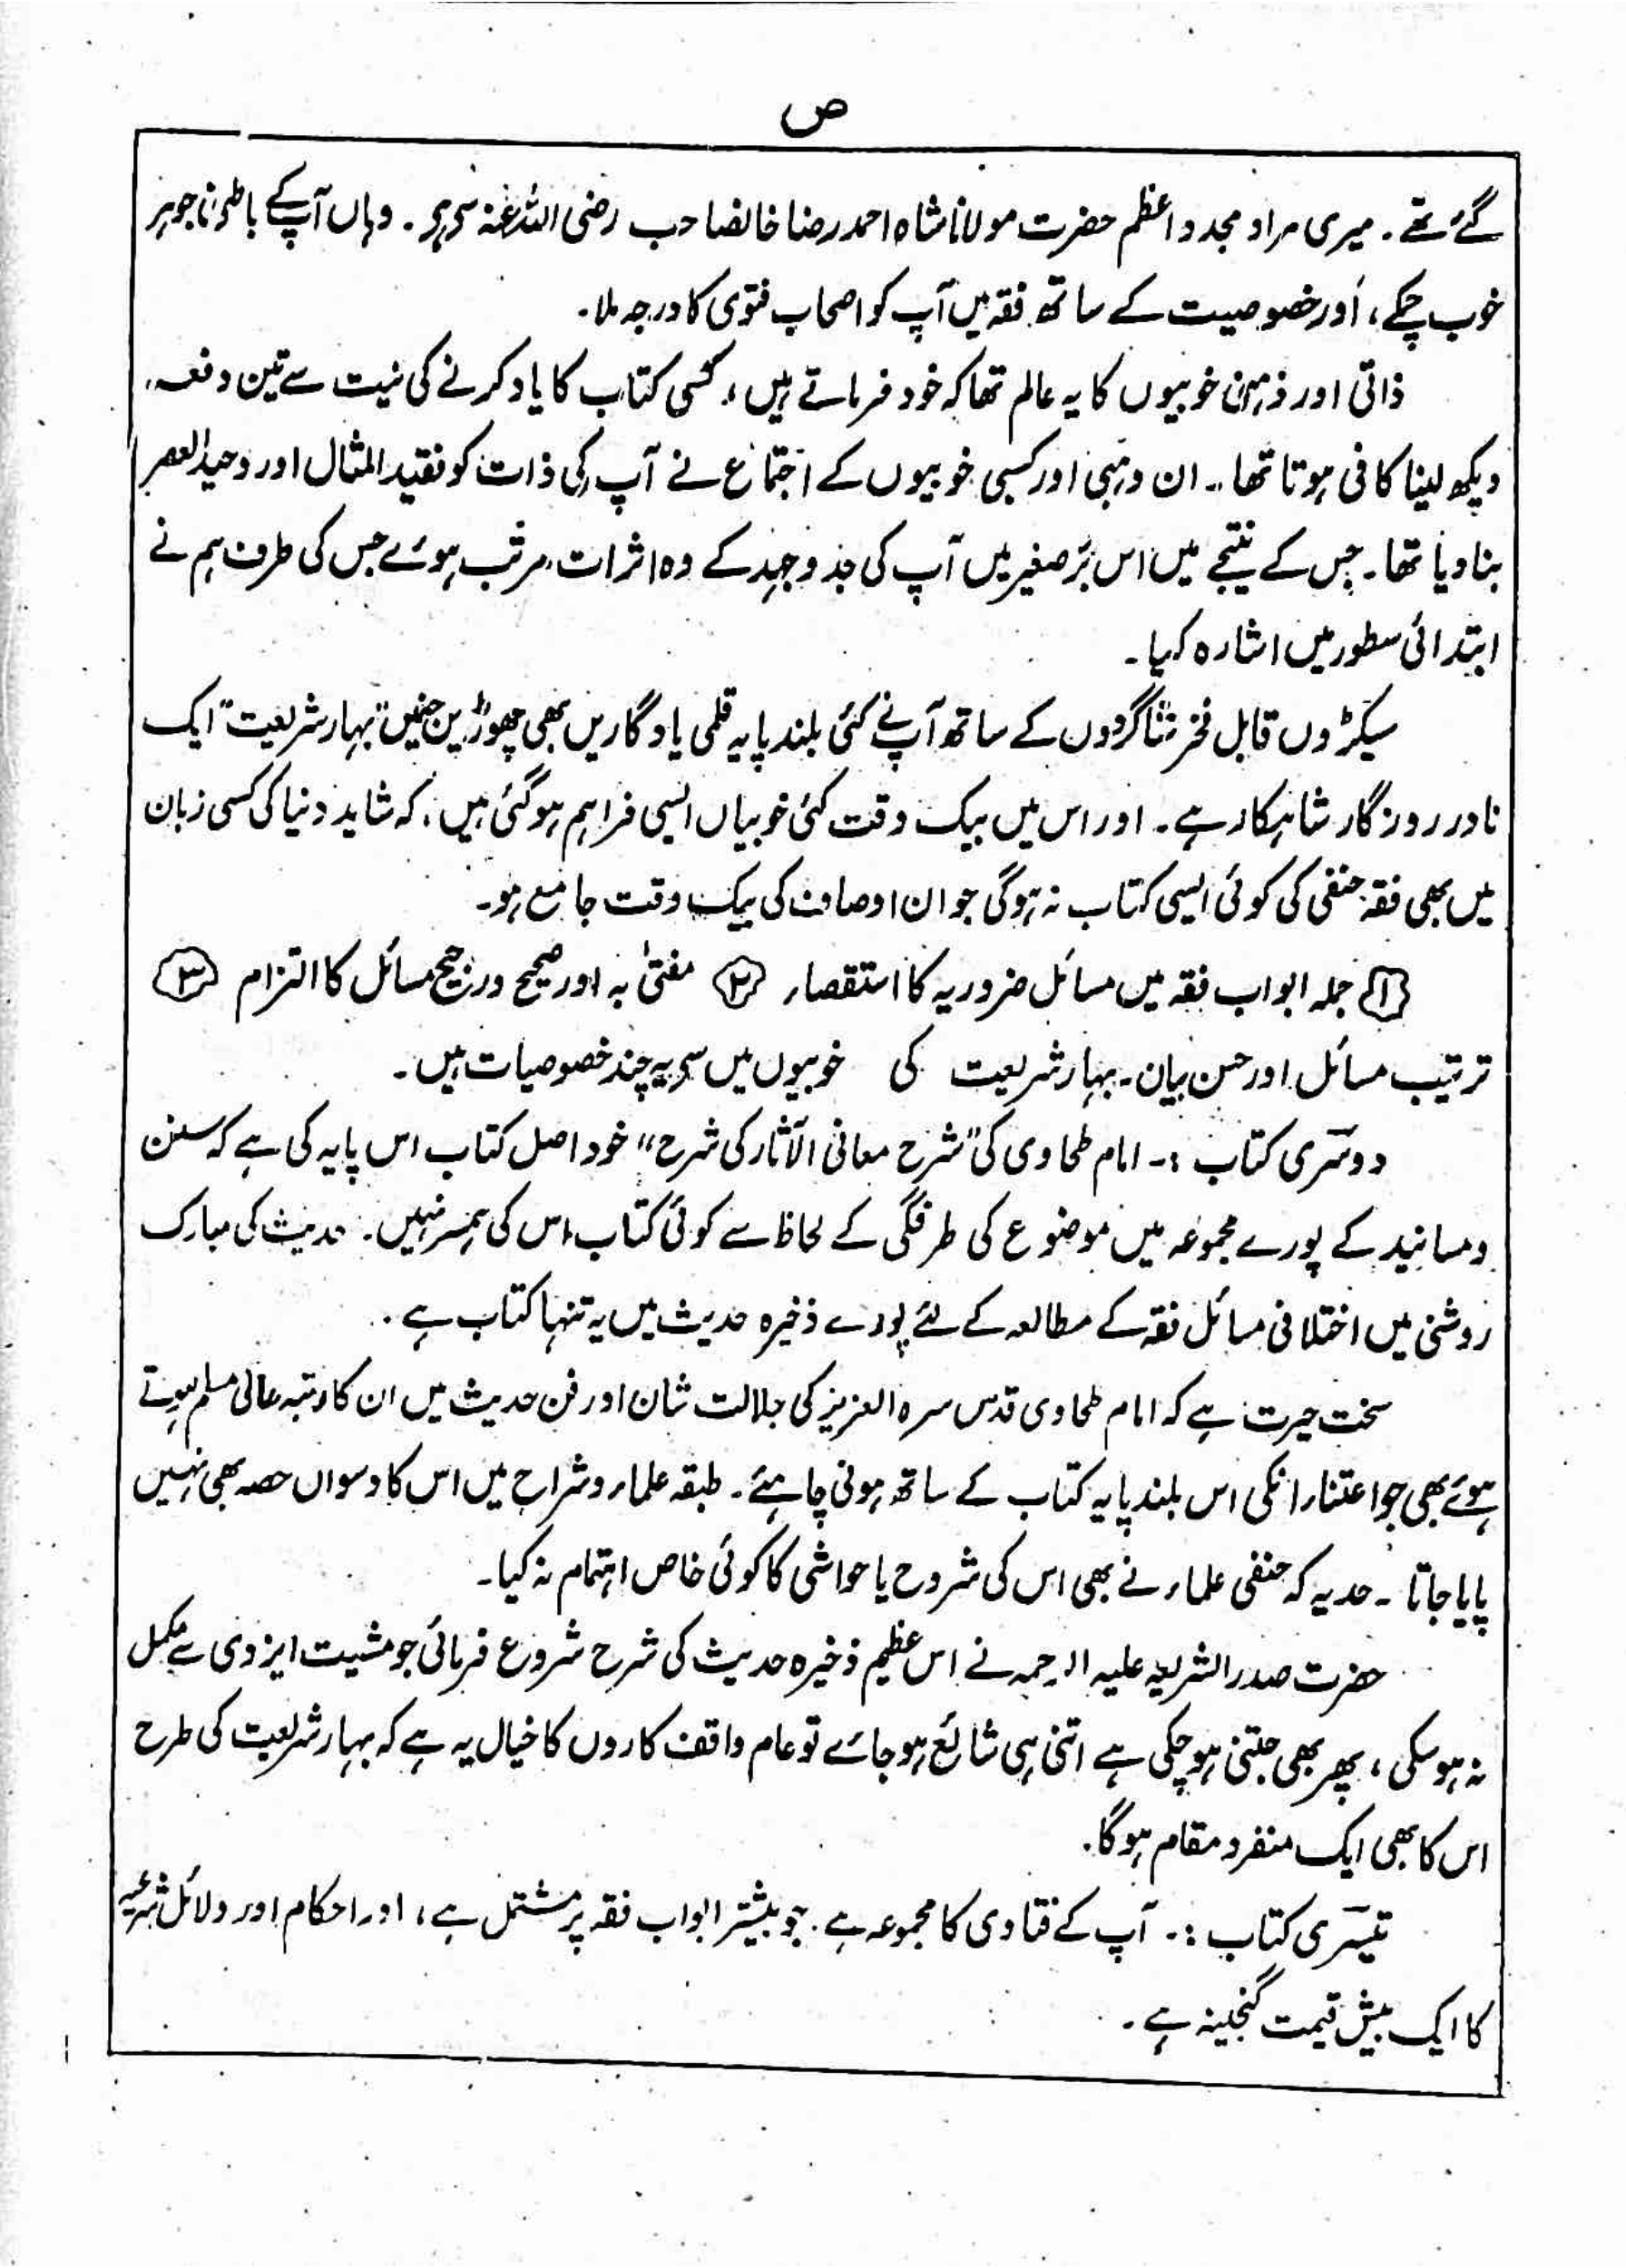 ص
گئے تھے ۔ میری مراد مجدد اعظم حضرت مولانا شاہ احمد رضا خانصاحب رضی اللہ عنہ سے ہے ۔ وہاں آپکے باطنی جوہر
خوب چمکے ، اور خصوصیت کے ساتھ فقہ میں آپ کو اصحاب فتوی کا درجہ ملا ۔
ذاتی اور ذہنی خوبیوں کا یہ عالم تھا کہ خود فرماتے ہیں ، کسی کتاب کا یاد کرنے کی نیت سے تین دفعہ
دیکھ لینا کافی ہوتا تھا ۔ ان وہبی اور کسبی خوبیوں کے اجتماع نے آپ کی ذات کو فقید المثال اور وحید العصر
بنا دیا تھا ۔ جس کے نتیجے میں اس برّصغیر میں آپ کی جد و جہد کے وہ اثرات مرتب ہوئے جس کی طرف ہم نے
ابتدائی سطور میں اشارہ کیا ۔
سیکڑوں قابل فخر شاگردوں کے ساتھ آپ نے کئی بلند پایہ قلمی یادگاریں بھی چھوڑیں جنمیں "بہار شریعت" ایک
نادر روزگار شاہکار ہے ۔ اور اس میں بیک وقت کئی خوبیاں ایسی فراہم ہو گئی ہیں ، کہ شاید دنیا کی کسی زبان
میں بھی فقہ حنفی کی کوئی ایسی کتاب نہ ہوگی جو ان اوصاف کی بیک وقت جامع ہو ۔
{۱} جملہ ابواب فقہ میں مسائل ضروریہ کا استقصاء {۲} مفتیٰ بہ اور صحیح و رجیح مسائل کا التزام {۳}
ترتیب مسائل اور حسن بیان ۔ بہار شریعت کی خوبیوں میں سے یہ چند خصوصیات ہیں ۔
دوسری کتاب :۔ امام طحاوی کی "شرح معانی الآثار کی شرح" خود اصل کتاب اس پایہ کی ہے کہ سنن
و مسانید کے پورے مجموعہ میں موضوع کی طرفگی کے لحاظ سے کوئی کتاب اس کی ہمسر نہیں ۔ حدیث کی مبارک
روشنی میں اختلافی مسائل فقہ کے مطالعہ کے لئے پورے ذخیرہ حدیث میں یہ تنہا کتاب ہے ۔
سخت حیرت ہے کہ امام طحاوی قدس سرہ العزیز کی جلالت شان اور فن حدیث میں ان کا رتبہ عالی مسلم ہوتے
ہوئے بھی جو اعتناء انکی اس بلند پایہ کتاب کے ساتھ ہونی چاہئے ۔ طبقہ علماء و شراح میں اس کا دسواں حصہ بھی نہیں
پایا جاتا ۔ حد یہ کہ حنفی علماء نے بھی اس کی شروح یا حواشی کا کوئی خاص اہتمام نہ کیا ۔
حضرت صدر الشریعہ علیہ الرحمہ نے اس عظیم ذخیرہ حدیث کی شرح شروع فرمائی جو مشیت ایزدی سے مکمل
نہ ہو سکی ، پھر بھی جتنی ہو چکی ہے اتنی ہی شائع ہو جائے تو عام واقف کاروں کا خیال یہ ہے کہ بہار شریعت کی طرح
اس کا بھی ایک منفرد مقام ہوگا ۔
تیسری کتاب :۔ آپ کے فتاوی کا مجموعہ ہے ۔ جو بیشتر ابواب فقہ پر مشتمل ہے ، اور احکام اور دلائل شرعیہ
کا ایک بیش قیمت گنجینہ ہے ۔